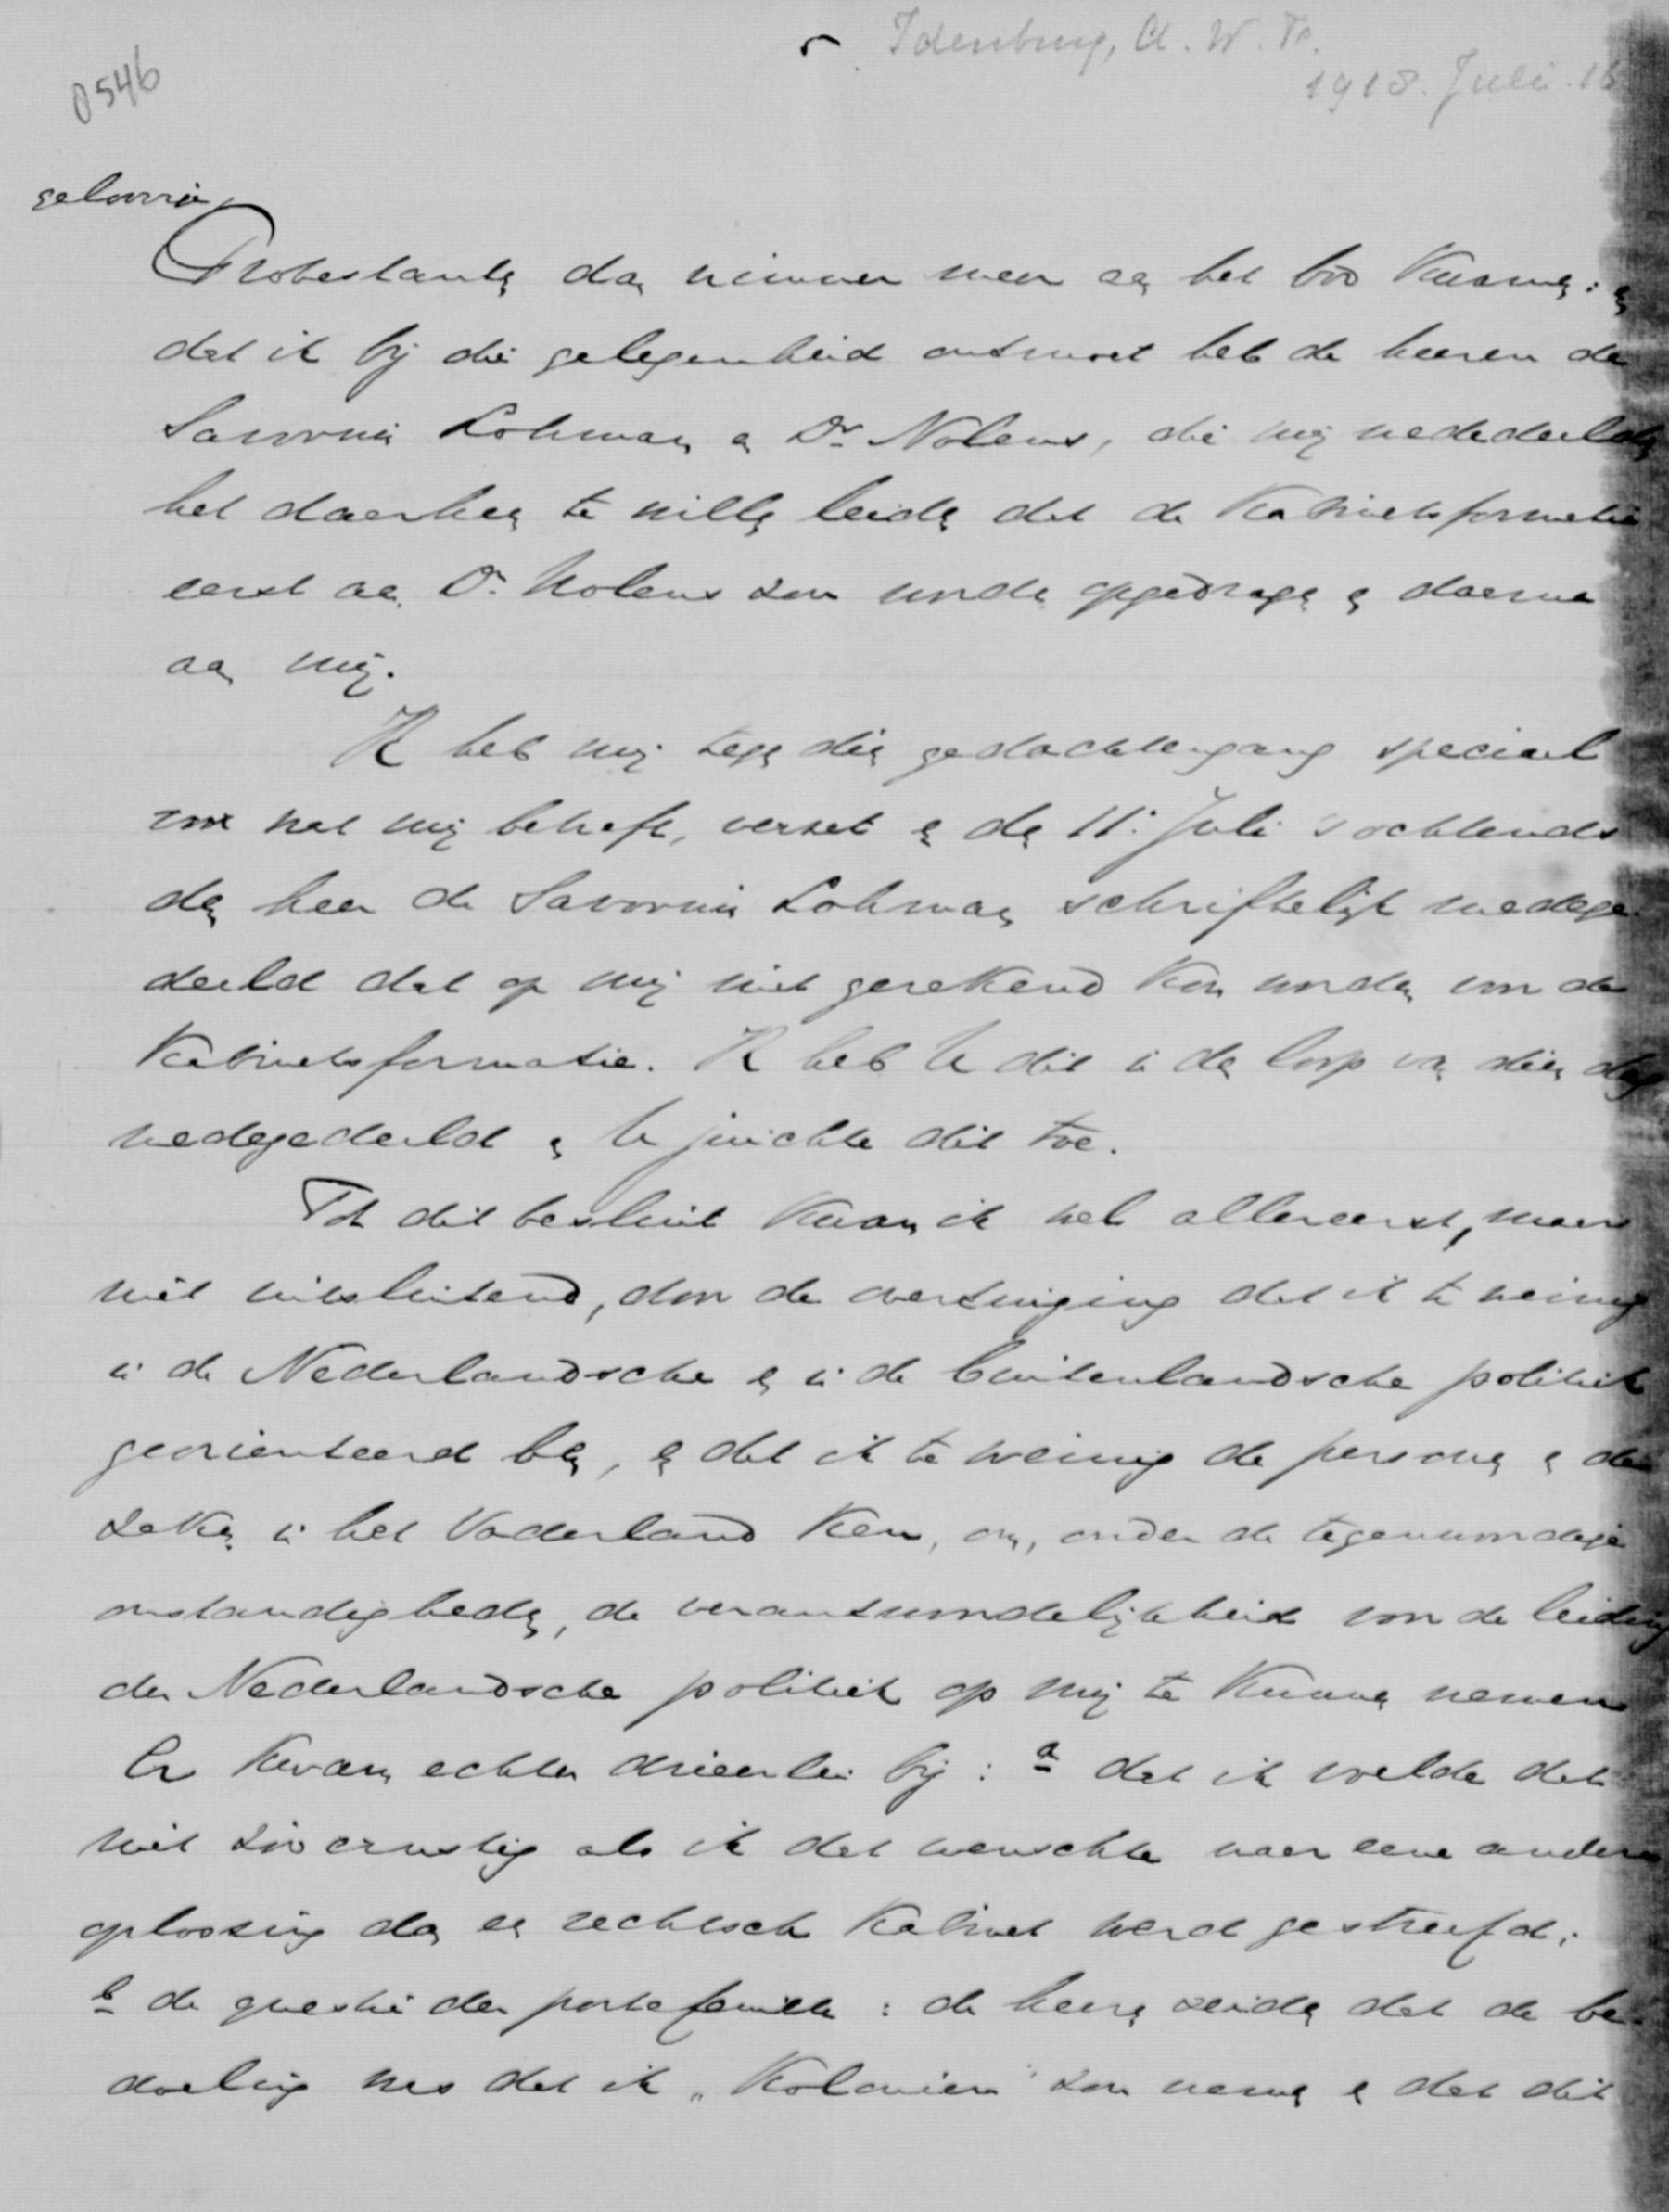 Idenburg, A. W. F.
1918. Juli. 16
0546
geloovige
Protestanten dan nimmer meer aan het bod kwamen; en
dat ik bij die gelegenheid ontmoet heb de heeren de
Savornin Lohman en Dr Nolens, die mij mededeelden
het daarheen te willen leiden dat de Kabinetsformatie
eerst aan Dr Nolens zou worden opgedragen en daarna
aan mij.
Ik heb mij tegen dien gedachtengang speciaal
voor wat mij betreft, verzet en den 11en Juli 's ochtends
den heer de Savornin Lohman schriftelijk medege-
deeld dat op mij niet gerekend kon worden voor de
Kabinetsformatie. Ik heb U dit in den loop van dien dag
medegedeeld en U juichte dit toe.
Tot dit besluit kwam ik wel allereerst, maar
niet uitsluitend, door de overtuiging dat ik te weinig
in de Nederlandsche en in de buitenlandsche politiek
georienteerd ben, en dat ik te weinig de personen en de
zaken in het Vaderland ken, om, onder de tegenwoordige
omstandigheden, de verantwoordelijkheid voor de leiding
der Nederlandsche politiek op mij te kunnen nemen
Er kwam echter drieerlei bij: a dat ik voelde dat
niet zoo ernstig als ik dat wenschte naar eene andere
oplossing dan een rechtsch Kabinet werd gestreefd;
b de questie der portefeuille: de heeren zeiden dat de be-
doeling was dat ik "Kolonien" zou nemen en dat dit